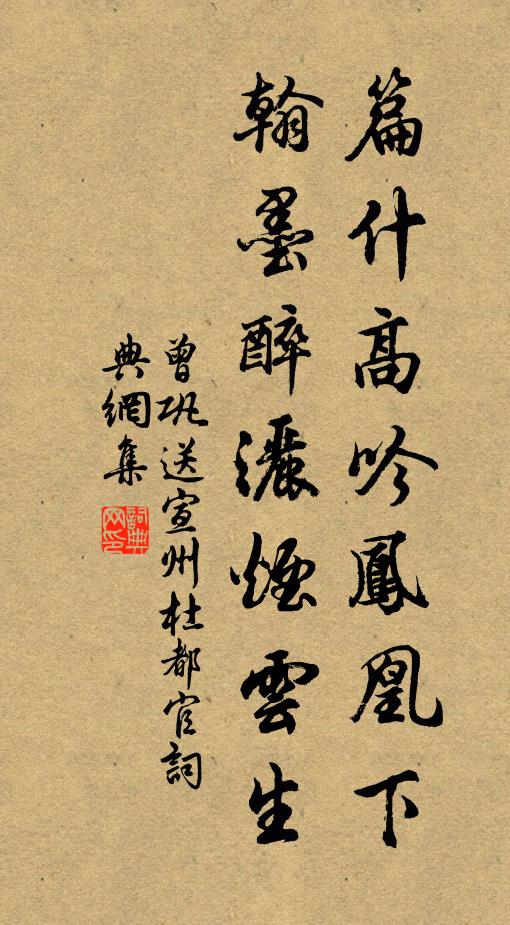 篇什高吟鳳凰下
翰墨醉灑煙雲生
曾巩送宣州杜都官詞
典網集
詞典網印